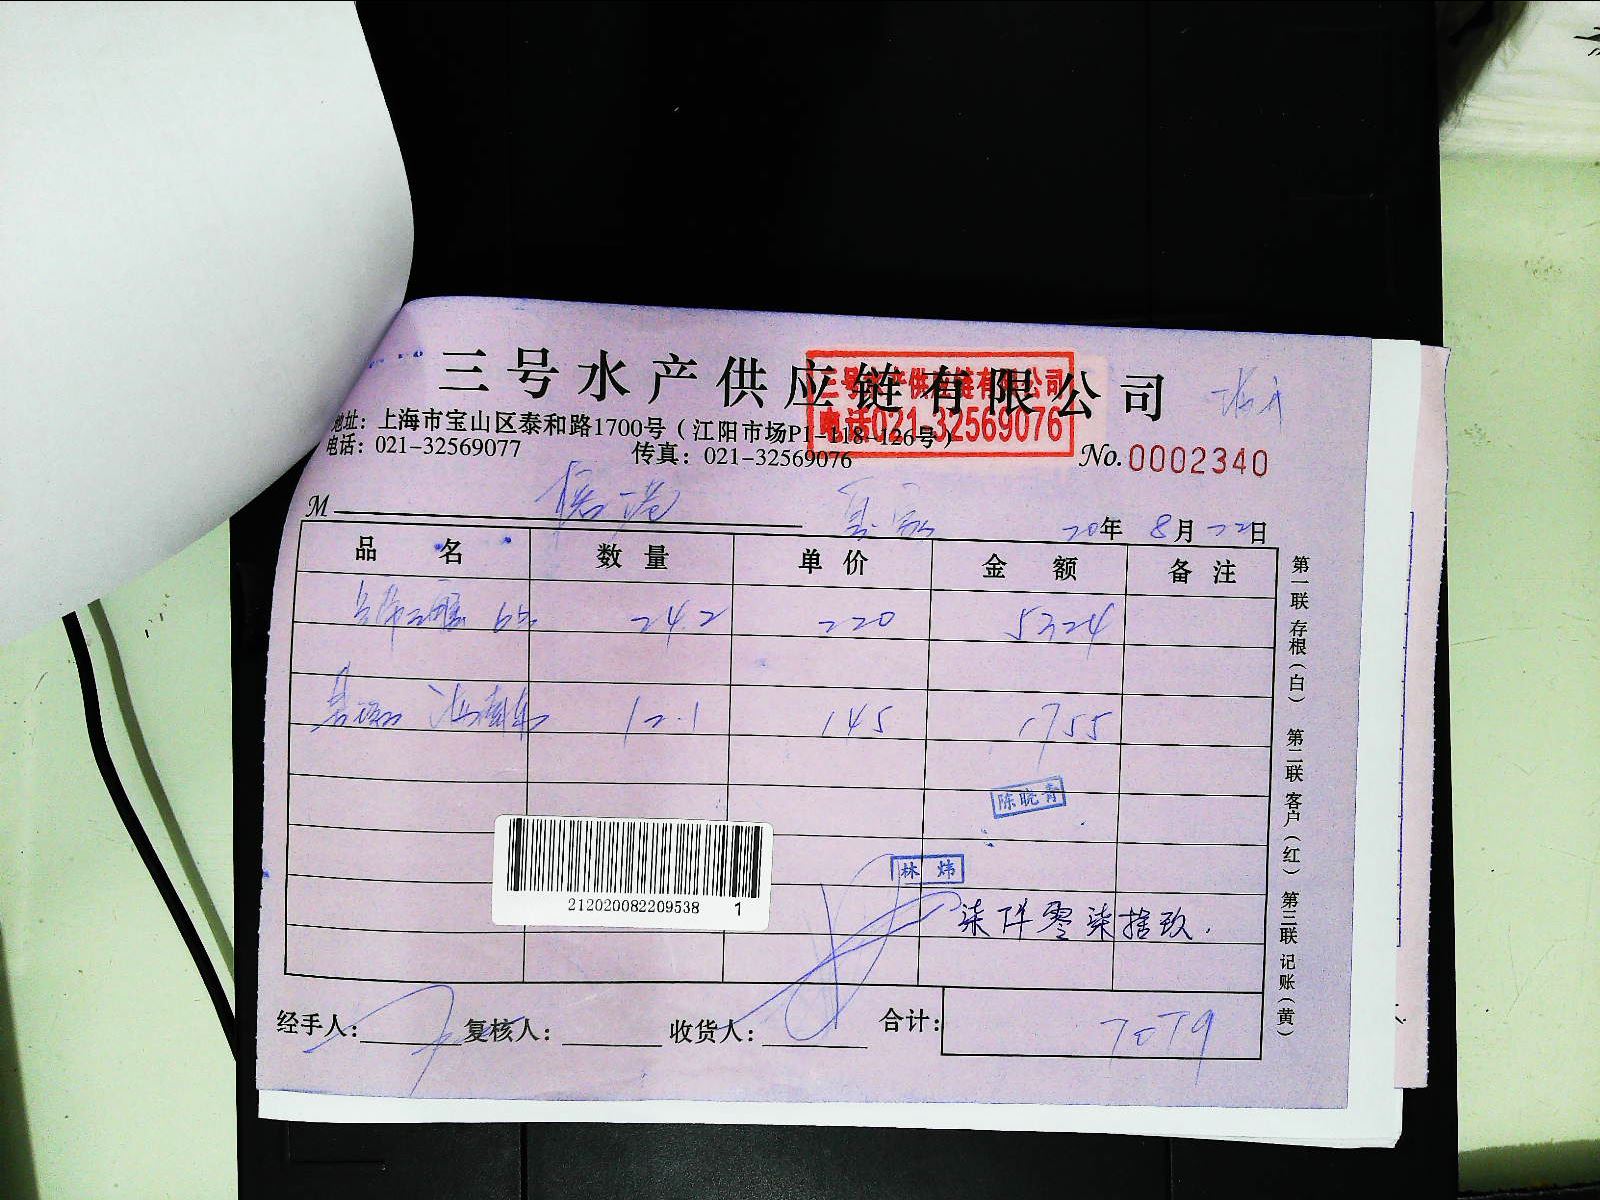 三号水产供应链有限公司
三号水产供应链有限公司
电话021-32569076
地址：上海市宝山区泰和路1700号（江阳市场P1-118-126号）
电话：021-32569077 传真：021-32569076
No.0002340
M
20年 8月22日
品名 数量 单价 金额 备注
24.2 220 5324
海南 12.1 145 1755
陈晓青
林炜
212020082209538 1
柒仟零柒拾玖.
经手人： 复核人： 收货人： 合计： 7079
第一联 存根（白） 第二联 客户（红） 第三联 记账（黄）